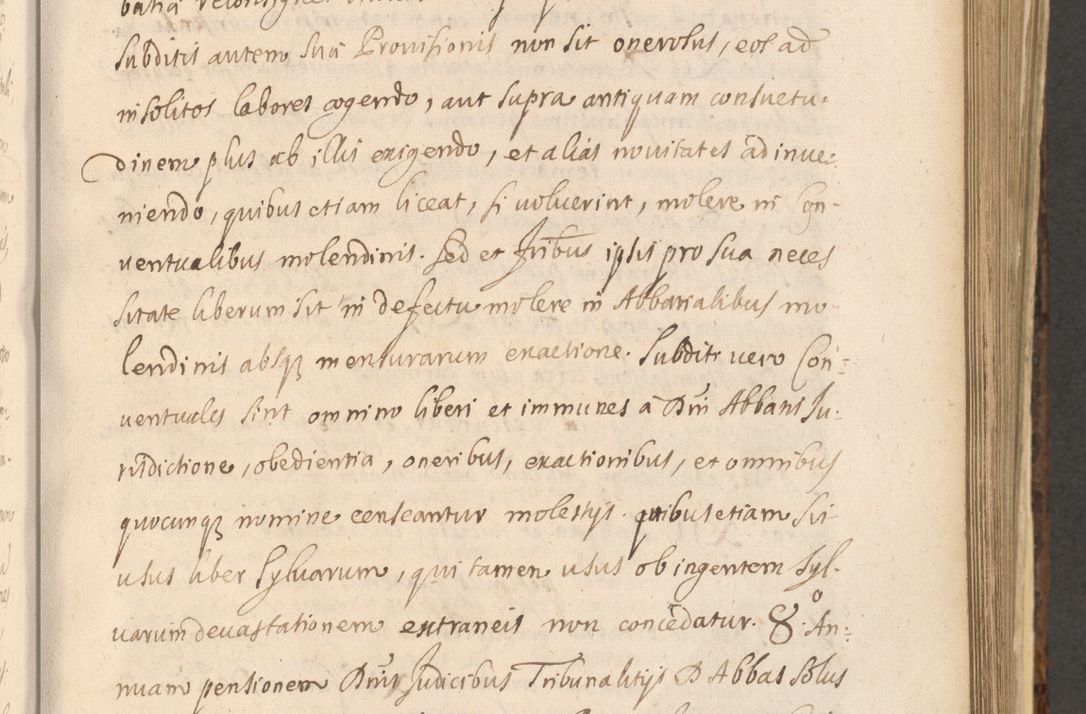 subditis autem suæ Provisionis non sit onerosus, eos ad
insolitos labores cogendo, aut supra antiquam consuetu-
dinem plus ab illis exigendo, et alias novitates adinve-
niendo, quibus etiam liceat, si voluerint, molere in Con-
ventualibus molendinis. Sed et Fribus ipsis pro sua neces
sitate liberum sit in defectu molere in Abbatialibus mo-
lendinis absq; mensurarum exactione. Subditi vero Con-
ventuales sint omnino liberi et immunes à Dni Abbatis Ju-
risdictione, obedientia, oneribus, exactionibus, et omnibus
quocunq; nomine censeantur molestijs. quibus etiam sit
usus liber sylvarum, qui tamen usus ob ingentem syl-
varum devastationem extraneis non concedatur. 8º. An-
nuam pensionem Dnis Judicibus Tribunalitijs D Abbas solus